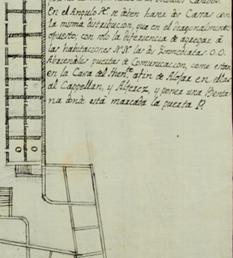 En el Angulo X. se deven hacer las Casas con
la misma distribucion, que en el diagonalmente
opuesto; con solo la diferencia de agregar á
las habitaciones N. N. las dos Enmochadas O. O.
haziendoles puertas de Comunicacion, como estan
en la Casa del Then.te afin de Alojar en ellas
al Cappellan, y Alferez, y poner una Venta-
na donde está marcada la puerta P.